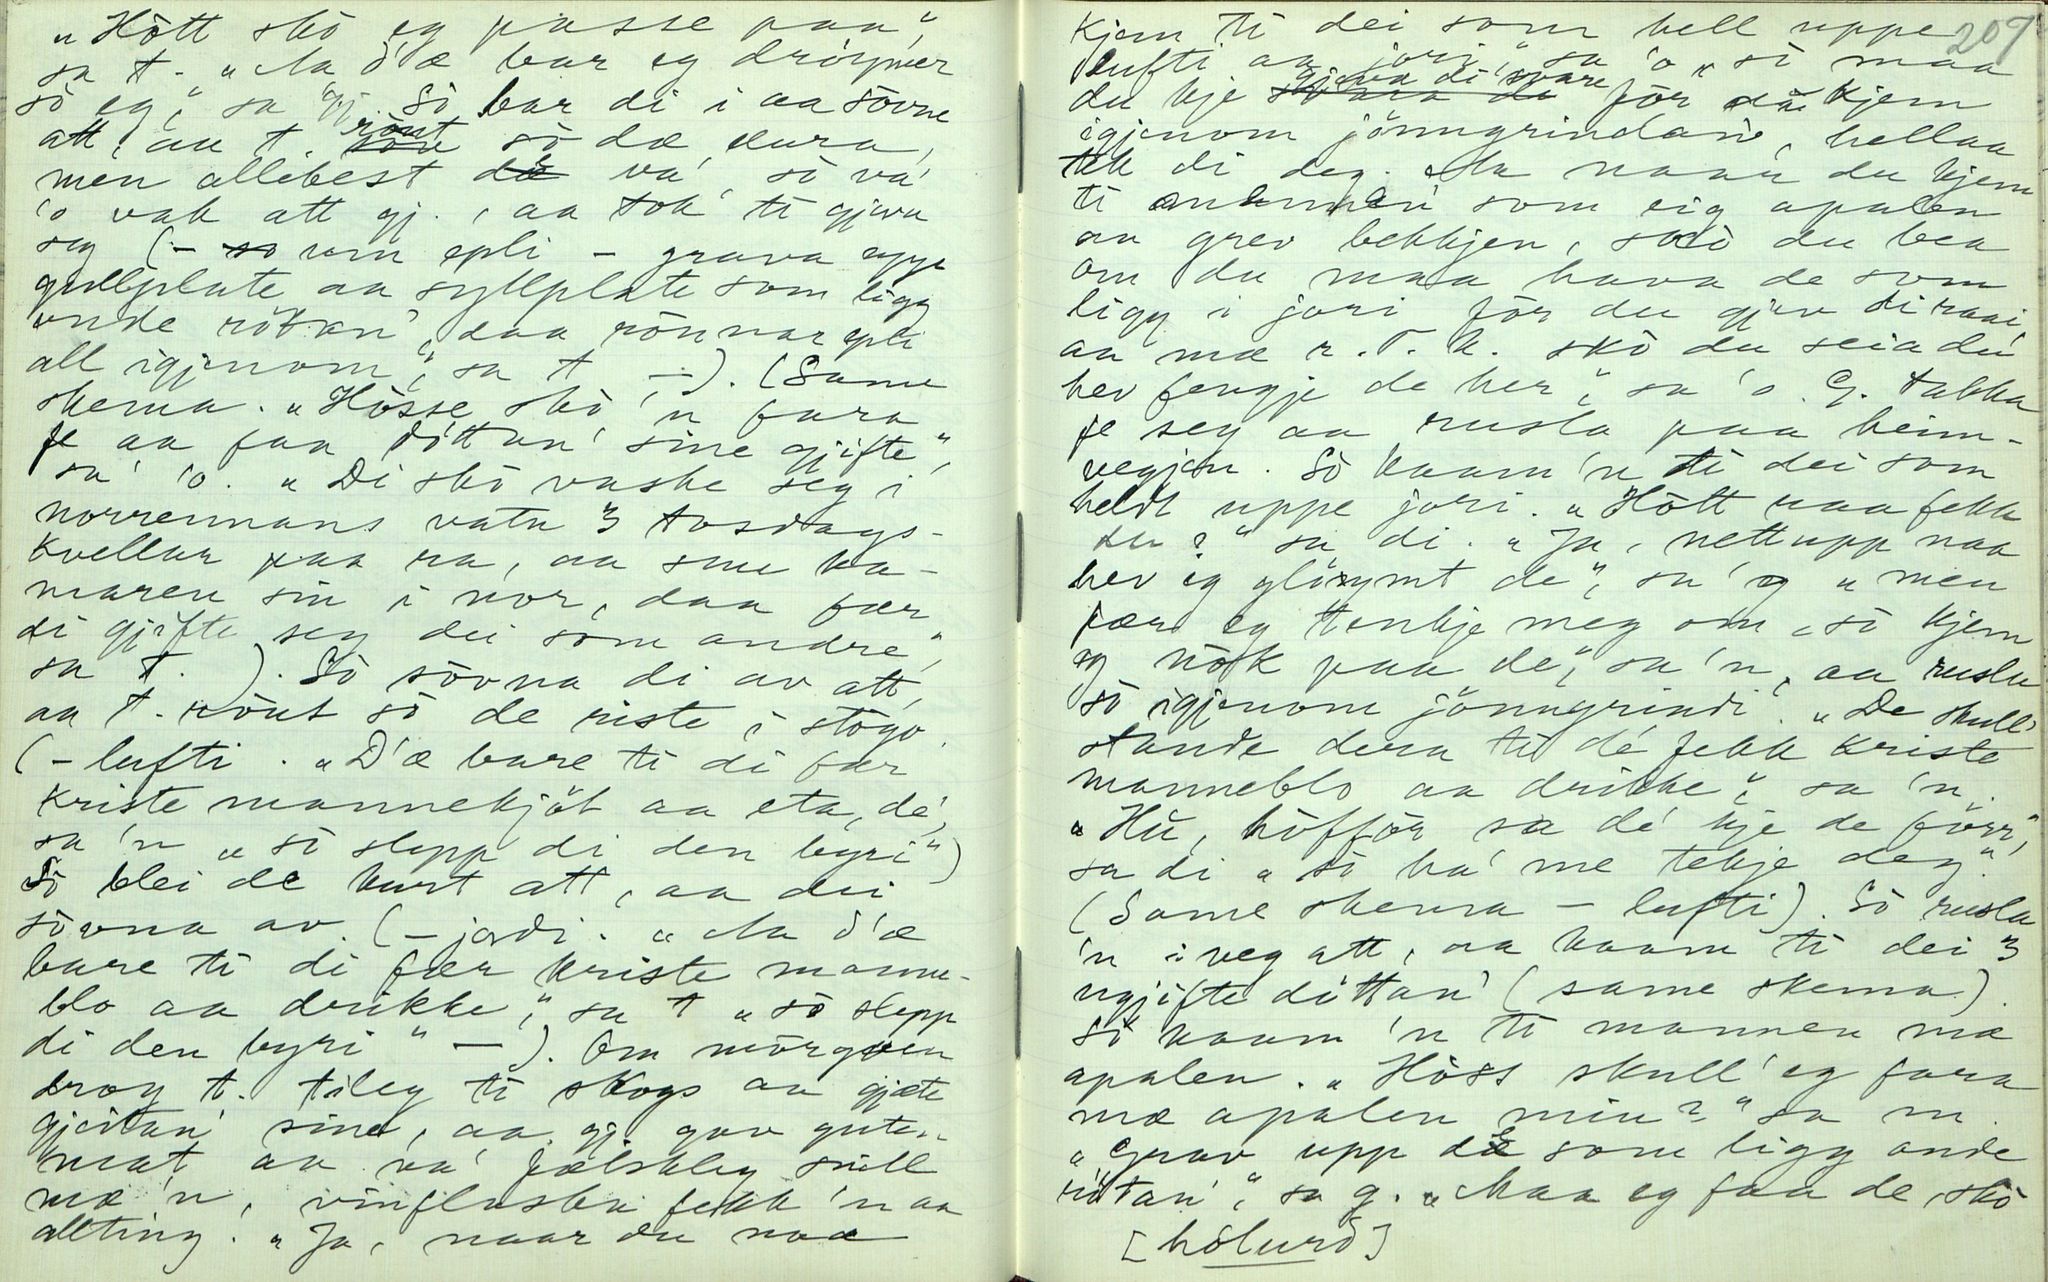 „Hött skö eg passe paa",
sa t. „Aa d'æ bar eg dröymer
sö eg," sa gj. Sö bar di i aa sövne
att, aa t. rönt sö dæ dura,
men allibest dæ va', sö va'
'o vak att gj., aa tok' ti gjeva
seg (– um epli – grava uppe
gullplate aa syllplate som ligg
unde rötan', daa rönnar epli
all igjenom," sa t. –). (Same
skema. „Hösse skö 'n fara
fe aa faa döttan' sine gjifte",
sa' 'o. „Di skö vaske seg i
norrennans vatn 3 tosdags-
kvellar paa ra, aa snu ka-
maren sin i nor, daa fær
di gjifte seg dei som andre",
sa t. ). Sö sövna di av att,
aa t. rönt sö de riste i stögo.
(– lufti. „D'æ bare ti di fær
kriste mannekjöt aa eta, de',
sa 'n „sö slepp di den byri")
Sö blei de kurt att, aa dei
sövna av. (– jordi. „Aa d'æ
bare ti di fær kriste manne-
blo aa drikke," sa t „sö slepp
di den byri" –). Om mörgoen
drog t. tileg ti skogs aa gjæte
gjeitan' sine, aa gj. gav guten
mat aa va' fælskleg snill
mæ 'n, vinflaska fekk 'n aa
allting. „Ja, naar du naa
209
kjem ti dei som hell uppe
lufti aa jori," sa 'o „sö maa
du kje gjeva di svare för du kjem
igjenom jönngrindan', hellaa
tek di deg. Aa naar du kjem
ti mannen som eig apalen
aa grev bekkjen, skö du bea
om du maa hava de som
ligg i jori för du gjev di raai,
aa mæ r. T. K. skö du seia du
hev fengje de her," sa 'o. G. takka
fe seg aa rusla paa heim-
vegjen. Sö kaam 'n ti dei som
heldt uppe jori. „Hött naa fekk
du?" sa di. „Ja, nettupp naa
hev eg glöymt de", sa 'g „men
fær eg tenkje meg om, sö kjem
eg nok paa de," sa 'n, aa rusla
sö igjenom jönngrindi. „De skull'
stande dera ti de fekk kriste
manneblo aa drikke," sa 'n.
„Hu, höfför sa de' kje de förr,"
sa di „sö ha' me tekje deg."
(Same skema – lufti). Sö rusla
'n i veg att, aa kaam ti dei 3
ugjifte döttan' (same skema).
Sö kaam 'n ti mannen mæ
apalen. „Höss skull' eg fara
mæ apalen min?" sa m.
„Grav upp de som ligg unde
rötan'," sa g. „Maa eg faa de, skö
[hölurd]